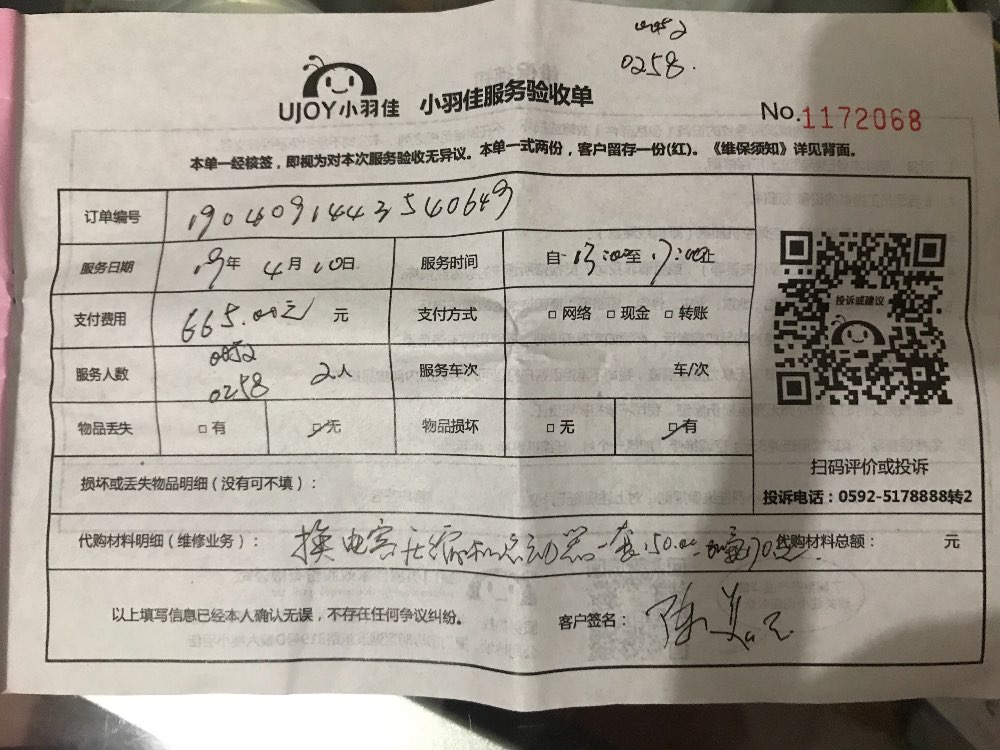 0052
0258.
UJOY小羽佳 小羽佳服务验收单
No.1172068
本单一经核签，即视为对本次服务验收无异议。本单一式两份，客户留存一份(红)。《维保须知》详见背面。
订单编号 190409144
服务日期 19年 4月 10日 服务时间 自 13:00至 17:00止
支付费用 665.00元 元 支付方式 □网络 □现金 □转账
投诉或建议
0052
服务人数 0258 2人 服务车次 车/次
物品丢失 □有 ☑无 物品损坏 □无 ☑有
扫码评价或投诉
损坏或丢失物品明细（没有可不填）：
投诉电话：0592-5178888转2
代购材料明细（维修业务）： 换电容 压缩机启动器一套150.00 代购材料总额： 元
以上填写信息已经本人确认无误，不存在任何争议纠纷。 客户签名：